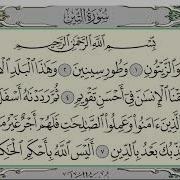 سُورَةُ التِّينِ
بِسْمِ اللَّهِ الرَّحْمَٰنِ الرَّحِيمِ
وَالزَّيْتُونِ ١ وَطُورِ سِينِينَ ٢ وَهَٰذَا الْبَلَدِ
قْنَا الْإِنسَٰنَ فِي أَحْسَنِ تَقْوِيمٍ ٤ ثُمَّ رَدَدْنَٰهُ أَسْفَلَ
الَّذِينَ ءَامَنُوا وَعَمِلُوا الصَّٰلِحَٰتِ فَلَهُمْ أَجْرٌ غَيْرُ
بُكَ بَعْدُ بِالدِّينِ ٧ أَلَيْسَ اللَّهُ بِأَحْكَمِ الْحَٰكِ